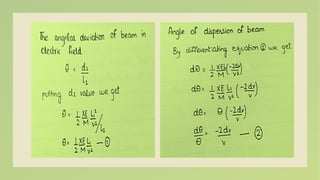 The angular deviation of beam in
electric field
θ = d₁
L₁
putting d₁ value we get
θ = 1/2 XE/M L₁²/V² / L₁
θ = 1/2 XE/M L₁/V² — ①
Angle of dispersion of beam
By differentiating equation ① we get
dθ = 1/2 XE/M L₁ (-2dv/v³)
dθ = 1/2 XE/M L₁/v² (-2dv/v)
dθ = θ (-2dv/v)
dθ/θ = -2dv/v — ②